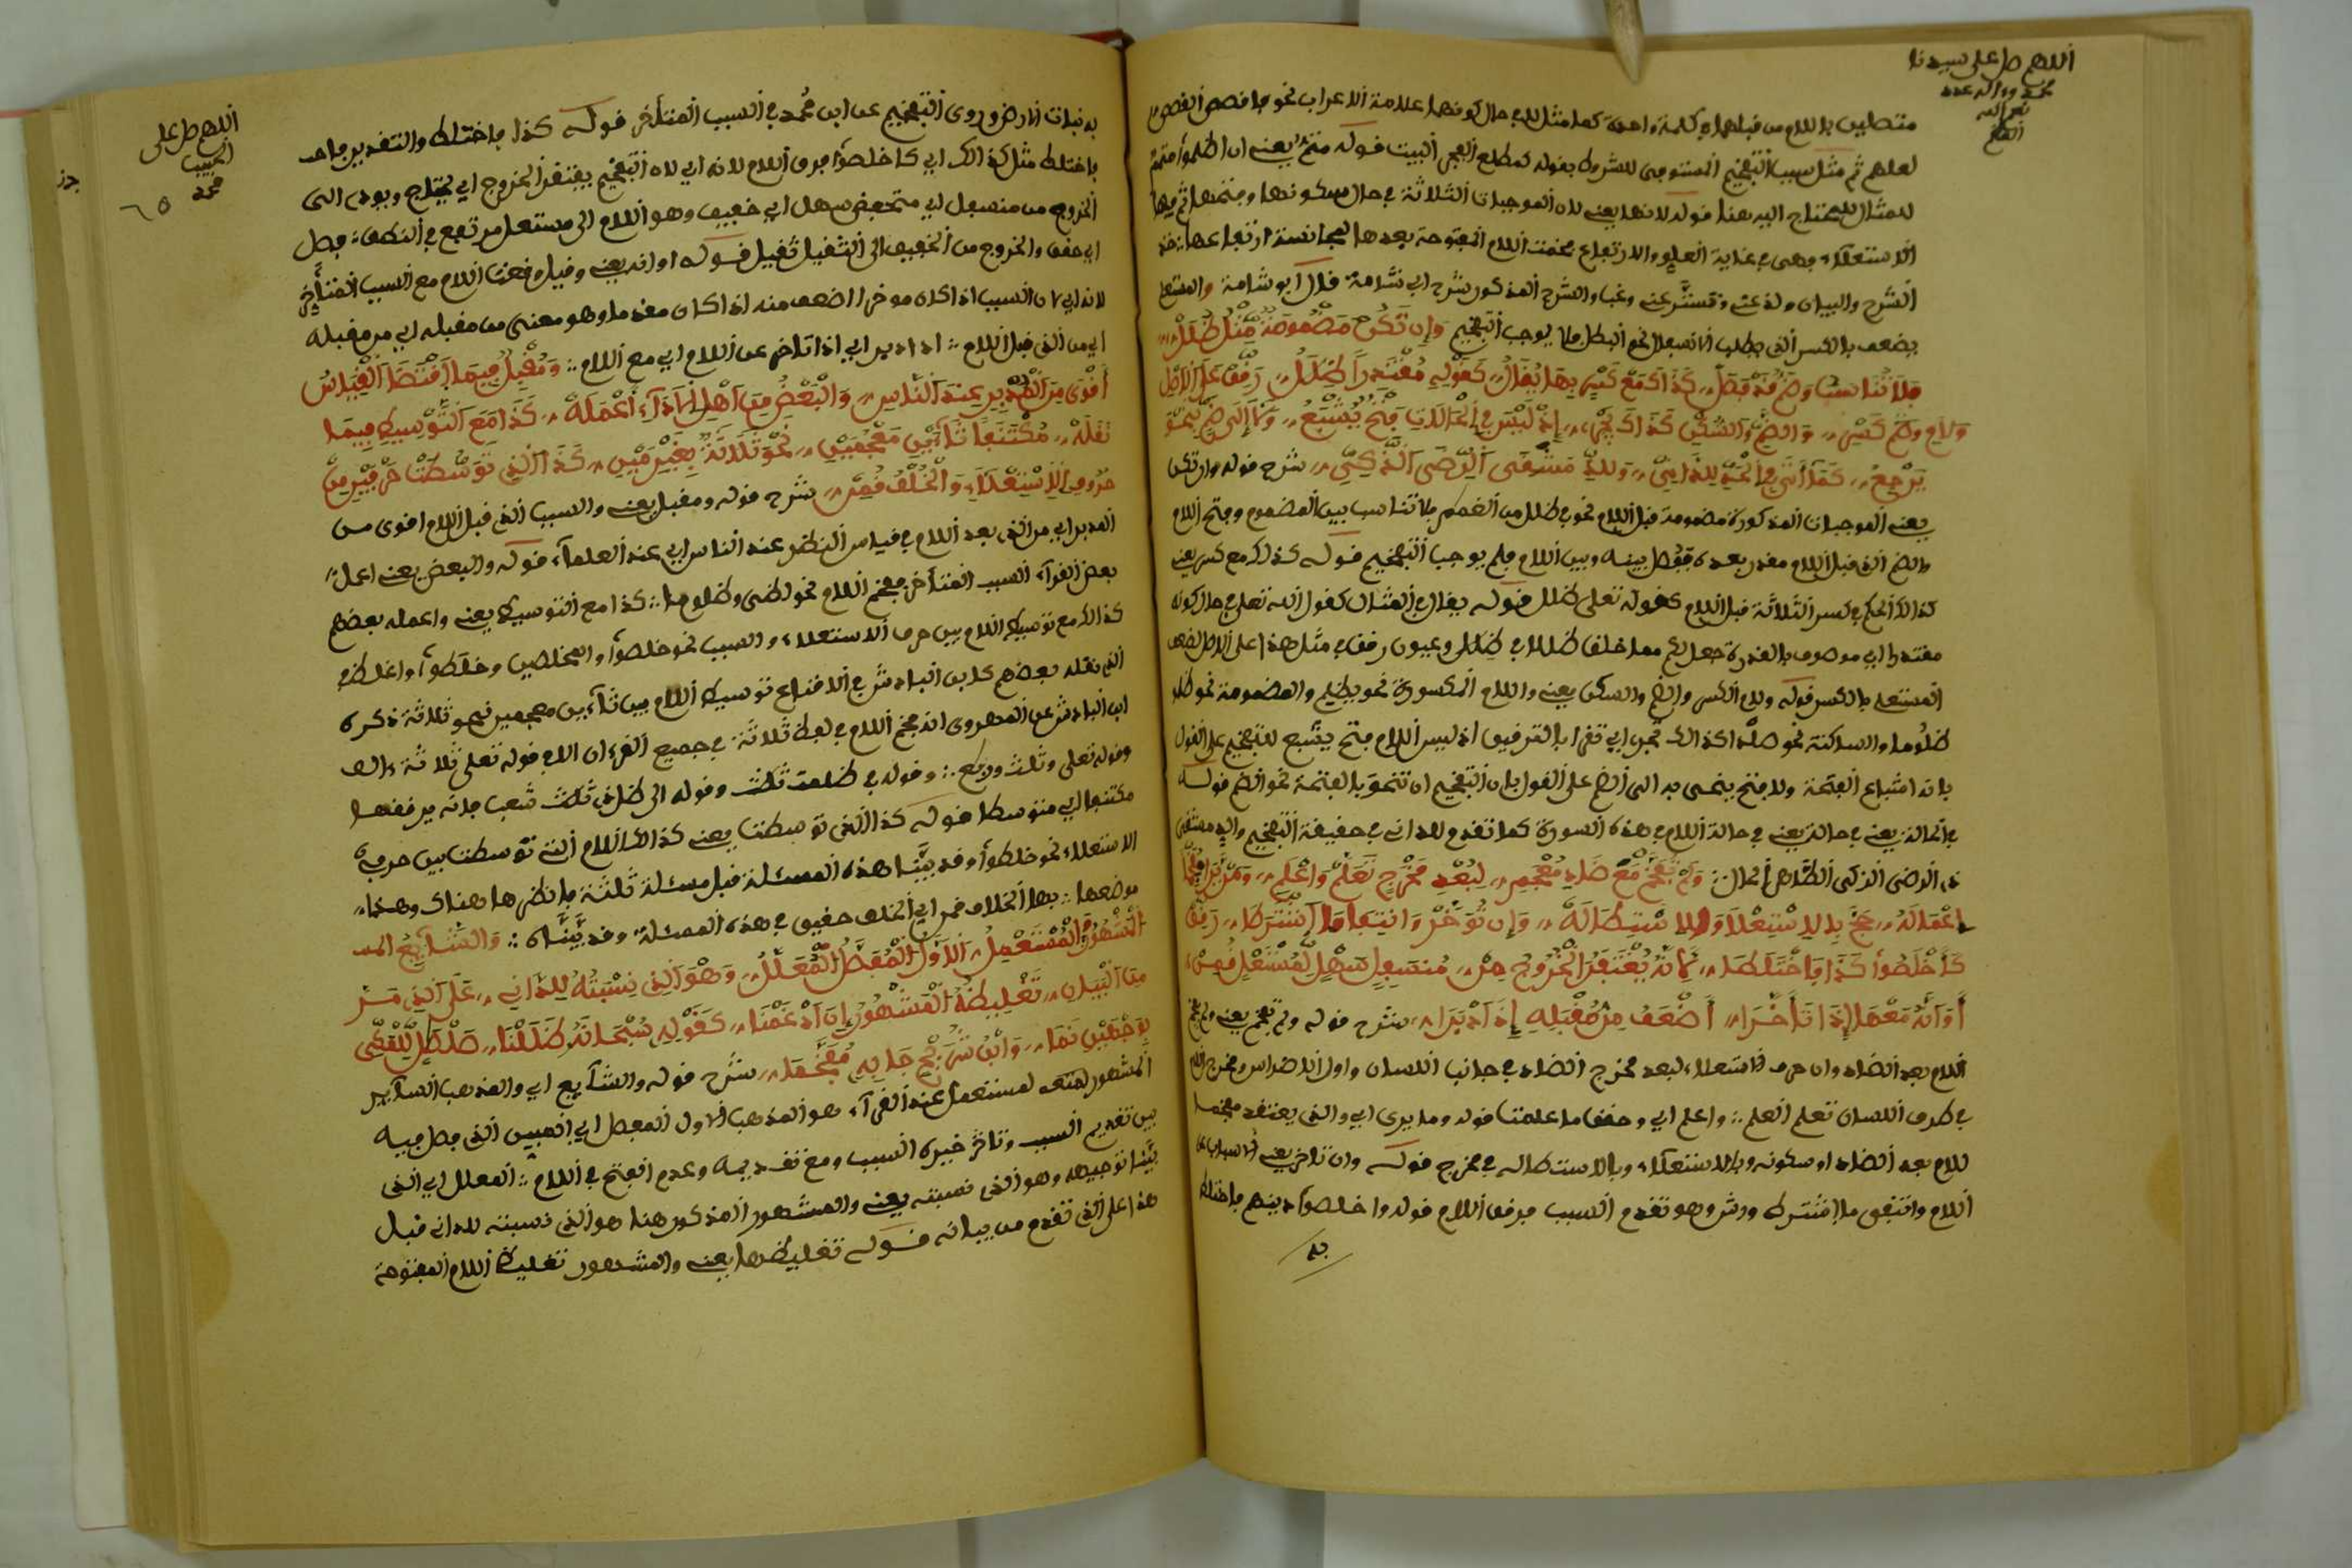 اللهم صل على سيدنا
محمد وءاله عدد
نعم الله
متصلين باللام من قبلهما في كلمة واحدة كما مثل لك في حال كونهما علامة الاعراب نحو فاقصص القصص
لعلهم ثم مثل سبب التفخيم المستوعب للشروط بقوله كمطلع الفجر البيت قوله يعنى ان اظلموا
للمثال المحتاج اليه هنا قوله لانها يعنى لان الموجبات الثلاثة في حال سكونها وفتحها
الاستعلاء وهى في غاية العلو والارتفاع فخمت اللام المفتوحة بعدها لمجانسة ارتفاعها
الشرح والبيان والشرح المذكور شرح ابي شامة قال ابو شامة والمستعل
يضعف بالكسر الذى يطلب الانسفال نحو البطل فلا يوجب التفخيم وإن تكن مضمومة مثل ظلل
فلا تناسب وضم قد فصل كذاك مع كسر بها يقال كقوله مقتدرا ظلل رقق على الأصل
ولام وضم كسر والضم والسكن كذاك تجر إذ ليس في الحالات فتح يشبع
يرجع كما أتى شرح قوله وان تكن
يعنى الموجبات المذكورة مضمومة قبل اللام نحو في ظلل من الغمام فلا تناسب بين المضموم وفتح اللام
والضم الذى قبل اللام مقدر بعده ففصل بينه وبين اللام فلم يوجب التفخيم قوله كذاك مع كسر يعنى
كذلك الحكم في كسر الثلاثة قبل اللام كقوله تعلى ظلل قوله يقال في المثال كقول الله تعلى في حال كونه
مقتدرا اي موصوف بالقدرة جعل لكم مما خلق ظلالا في ظلل وعيون رقق في مثل هذا على الاصل لضعف
المستعلى بالكسر قوله ولام الكسر والضم والسكن يعنى واللام المكسورة نحو يظلم والمضمومة نحو ظل
ظلوما والساكنة نحو صلصال كذاك تجر اي تقرأ بالترقيق اذ ليس في اللام فتح يشبع للتفخيم على القول
بانه اشباع الفتحة ولا فتح ينحى به الى الضم على القول بان التفخيم ان تنحو بالفتحة نحو الضم قوله
في الحالة يعنى في حالة اللام في هذه السورة كما تقدم للدانى في حقيقة التفخيم
الرضى الزكى الطاهر الحال ولم تفخم مع ضاد معجم لبعد مخرج تعلم واعلم
اعماله حج بالاستعلا والاستطاله وان تؤخر وانتفى ما اشترطا رقق
كاخلصوا كذا فاختلطا لانه يفتقر الخروج من منسفل سهل لمستعل قمن
أو أنه معها إذا تأخرا أضعف من مقبله إذا أدبرا شرح قوله ولم تفخم يعنى
اللام بعد الضاد وان حرف استعلاء لبعد مخرج الضاد في جانب اللسان واول الاضراس ومخرج اللام
في طرف اللسان تعلم العلم واعلم اي وحقق ما علمتنا قوله وما يرى اي والذى يعتقد مفخما
للام بعد الضاد او سكونه وبالاستعلاء وبالاستطالة في مخرج قوله وان تاخر يعنى
اللام وانتفى ما اشترط ورش وهو تقدم السبب فرقق اللام قوله واخلصوا دينهم فاختلط
به
اللهم صل على
الحبيب
محمد
٦٥
به نبات الارض وروى التفخيم عن ابن محمد في السبب المتأخر قوله كذا فاختلط والتقدير
فاختلط مثل كذلك اي كاخلصوا فرق اللام لانه اي لان التفخيم يفتقر الخروج اي يحتاج ويودى الى
الخروج من منسفل اي منخفض سهل اي خفيف وهو اللام الى مستعل مرتفع في النطق
اي حقق والخروج من الخفيف الى الثقيل ثقيل قوله او انه يعنى وقيل رققت اللام مع السبب المتأخر
لانه اي لان السبب اذا كان موخرا اضعف منه اذا كان مقدما وهو معنى من مقبله اي من مقبله
اي من الذى قبل اللام اذا ادبر اي اذا تاخر عن اللام اي مع اللام ومقبل فيما اقتضا القياس
أقوى من المدبر عند الناس والبعض من أهل الأداء أعمله كذا مع التوسيط فيما
نقله مكتنفا ثاءين معجمين نحو ثلاثة بغير مين كذا الذى توسطت حرفين من
حروف الاستعلاء والخلف قمن شرح قوله ومقبل يعنى والسبب الذى قبل اللام اقوى من
المدبر اي من الذى بعد اللام في قياس النظر عند الناس اي عند العلماء قوله والبعض يعنى اعمل
بعض القراء السبب المتأخر ففخم اللام نحو لظى وظلوما كذا مع التوسيط يعنى واعمله بعضهم
كذلك مع توسيط اللام بين حرف الاستعلاء والسبب نحو خلصوا والمخلصين وخلطوا واغلظ
الذى نقله بعضهم كابن الباذش في الاقناع توسيط اللام بين ثاءين معجمين نحو ثلاثة ذكره
ابن الباذش عن المصروى انه فخم اللام في لفظ ثلاثة في جميع القرءان الا في قوله تعلى ثلاثة
وقوله تعلى وثلث وربع وقوله في ظلمت ثلث وقوله الى ظل ذى ثلث شعب فانه يرققها
مكتنفا اي متوسطا قوله كذا الذى توسطتا يعنى كذلك اللام التى توسطت بين حرفي
الاستعلاء نحو خلطوا وقد بينا هذه المسئلة قبل مسئلة ثلثة فانظرها هناك وهذا
موضعها فها الخلاف قمن اي الخلف حقيق في هذه المسئلة وقد بيناه والشايع
المشهور المستعمل الاول المفصل المعلل وهو الذى نسبته للدانى على الذى مر
من البيان تغليظه المشهور ان ادغمنا كقوله سبحانه ظللنا صلصل
بوجهين نما وابن شريح جا به مفخما شرح قوله والشايع اي والمذهب الساير
المشهور لمستعمل عند القراء هو المذهب الاول المفصل اي المبين الذى فصل فيه
بين تقديم السبب وتاخيره السبب ومع تقديمه وعدم الفتح في اللام المعلل اي الذى
بينا توجيهه وهو الذى نسبته يعنى والمشهور المذكور هنا هو الذى نسبته للدانى قبل
هذا على الذى تقدم من بيانه قوله تغليظها يعنى والمشهور تغليظ اللام المفتوحة